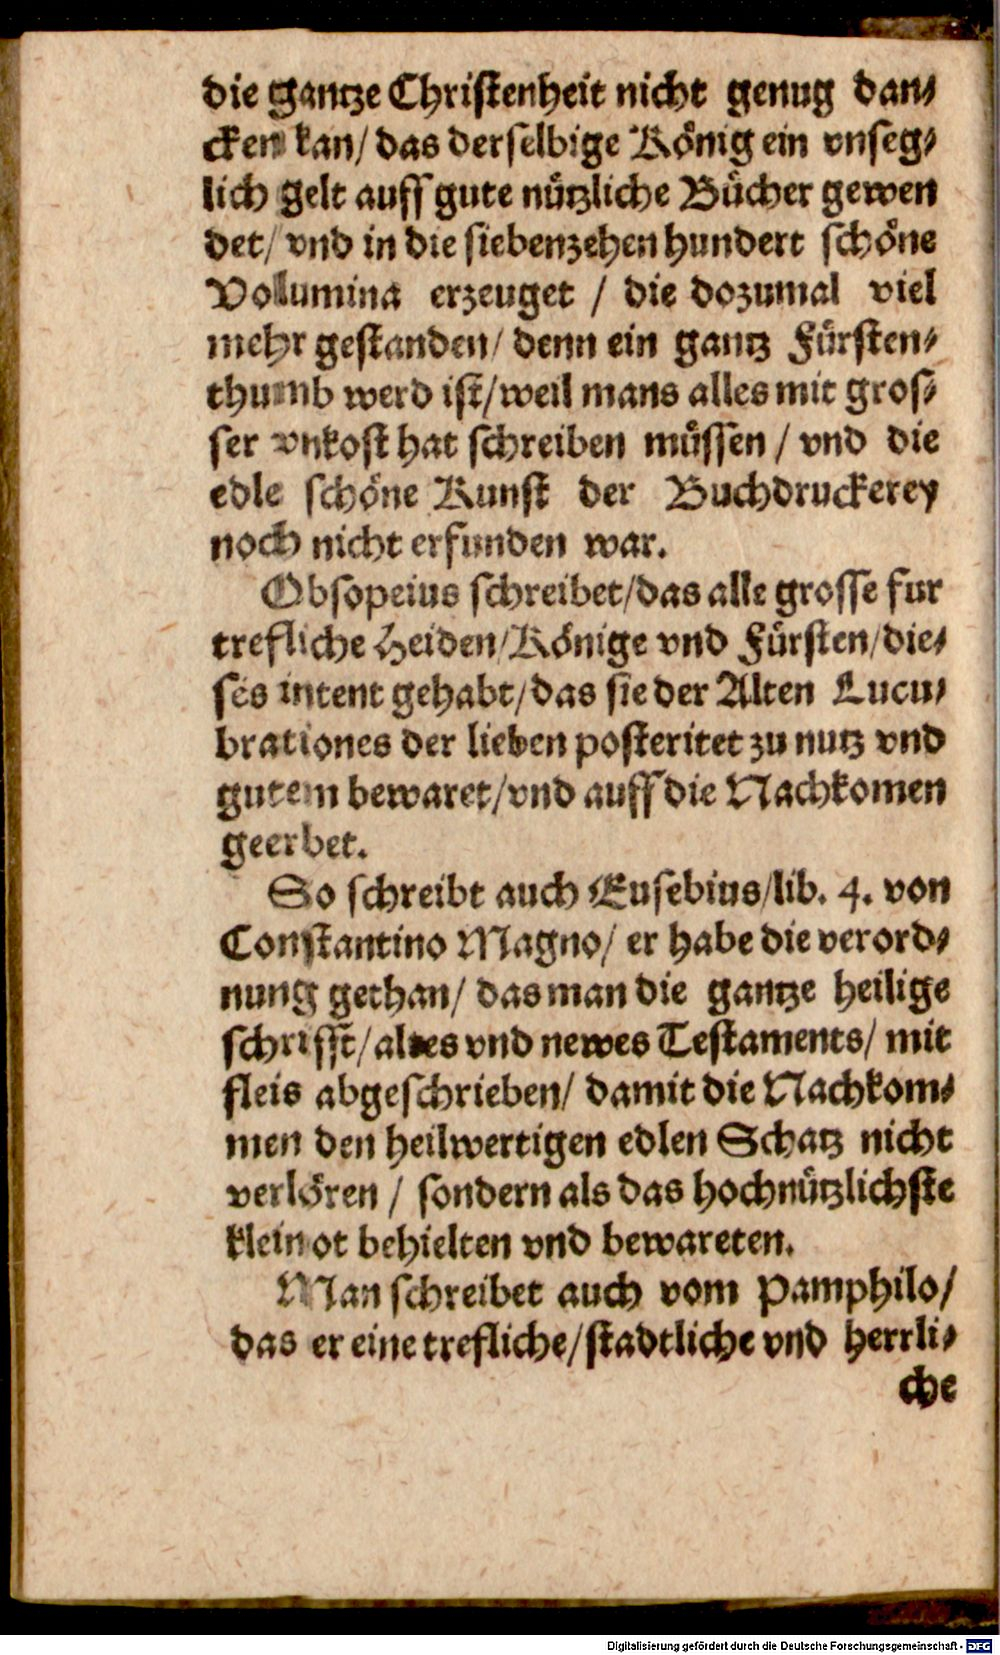 die gantze Christenheit nicht genug dan⸗
cken kan/ das derselbige König ein vnseg⸗
lich gelt auff gute nützliche Bücher gewen
det/ vnd in die siebenzehen hundert schöne
Volumina erzeuget / die dozumal viel
mehr gestanden/ denn ein gantz Fürsten⸗
thumb werd ist/ weil mans alles mit gros⸗
ser vnkost hat schreiben müssen / vnd die
edle schöne Kunst der Buchdruckerey
noch nicht erfunden war.
Obsopeius schreibet/ das alle grosse fur
trefliche Heiden/ Könige vnd Fürsten/ die⸗
ses intent gehabt/ das sie der Alten Lucu⸗
brationes der lieben posteritet zu nutz vnd
gutem bewaret/ vnd auff die Nachkomen
geerbet.
So schreibt auch Eusebius/ lib. 4. von
Constantino Magno/ er habe die verord⸗
nung gethan/ das man die gantze heilige
schrifft/ altes vnd newes Testaments/ mit
fleis abgeschrieben/ damit die Nachkom⸗
men den heilwertigen edlen Schatz nicht
verlören / sondern als das hochnützlichste
kleinot behielten vnd bewareten.
Man schreibet auch vom Pamphilo/
das er eine trefliche/ stadtliche vnd herrli⸗
che
Digitalisierung gefördert durch die Deutsche Forschungsgemeinschaft - DFG